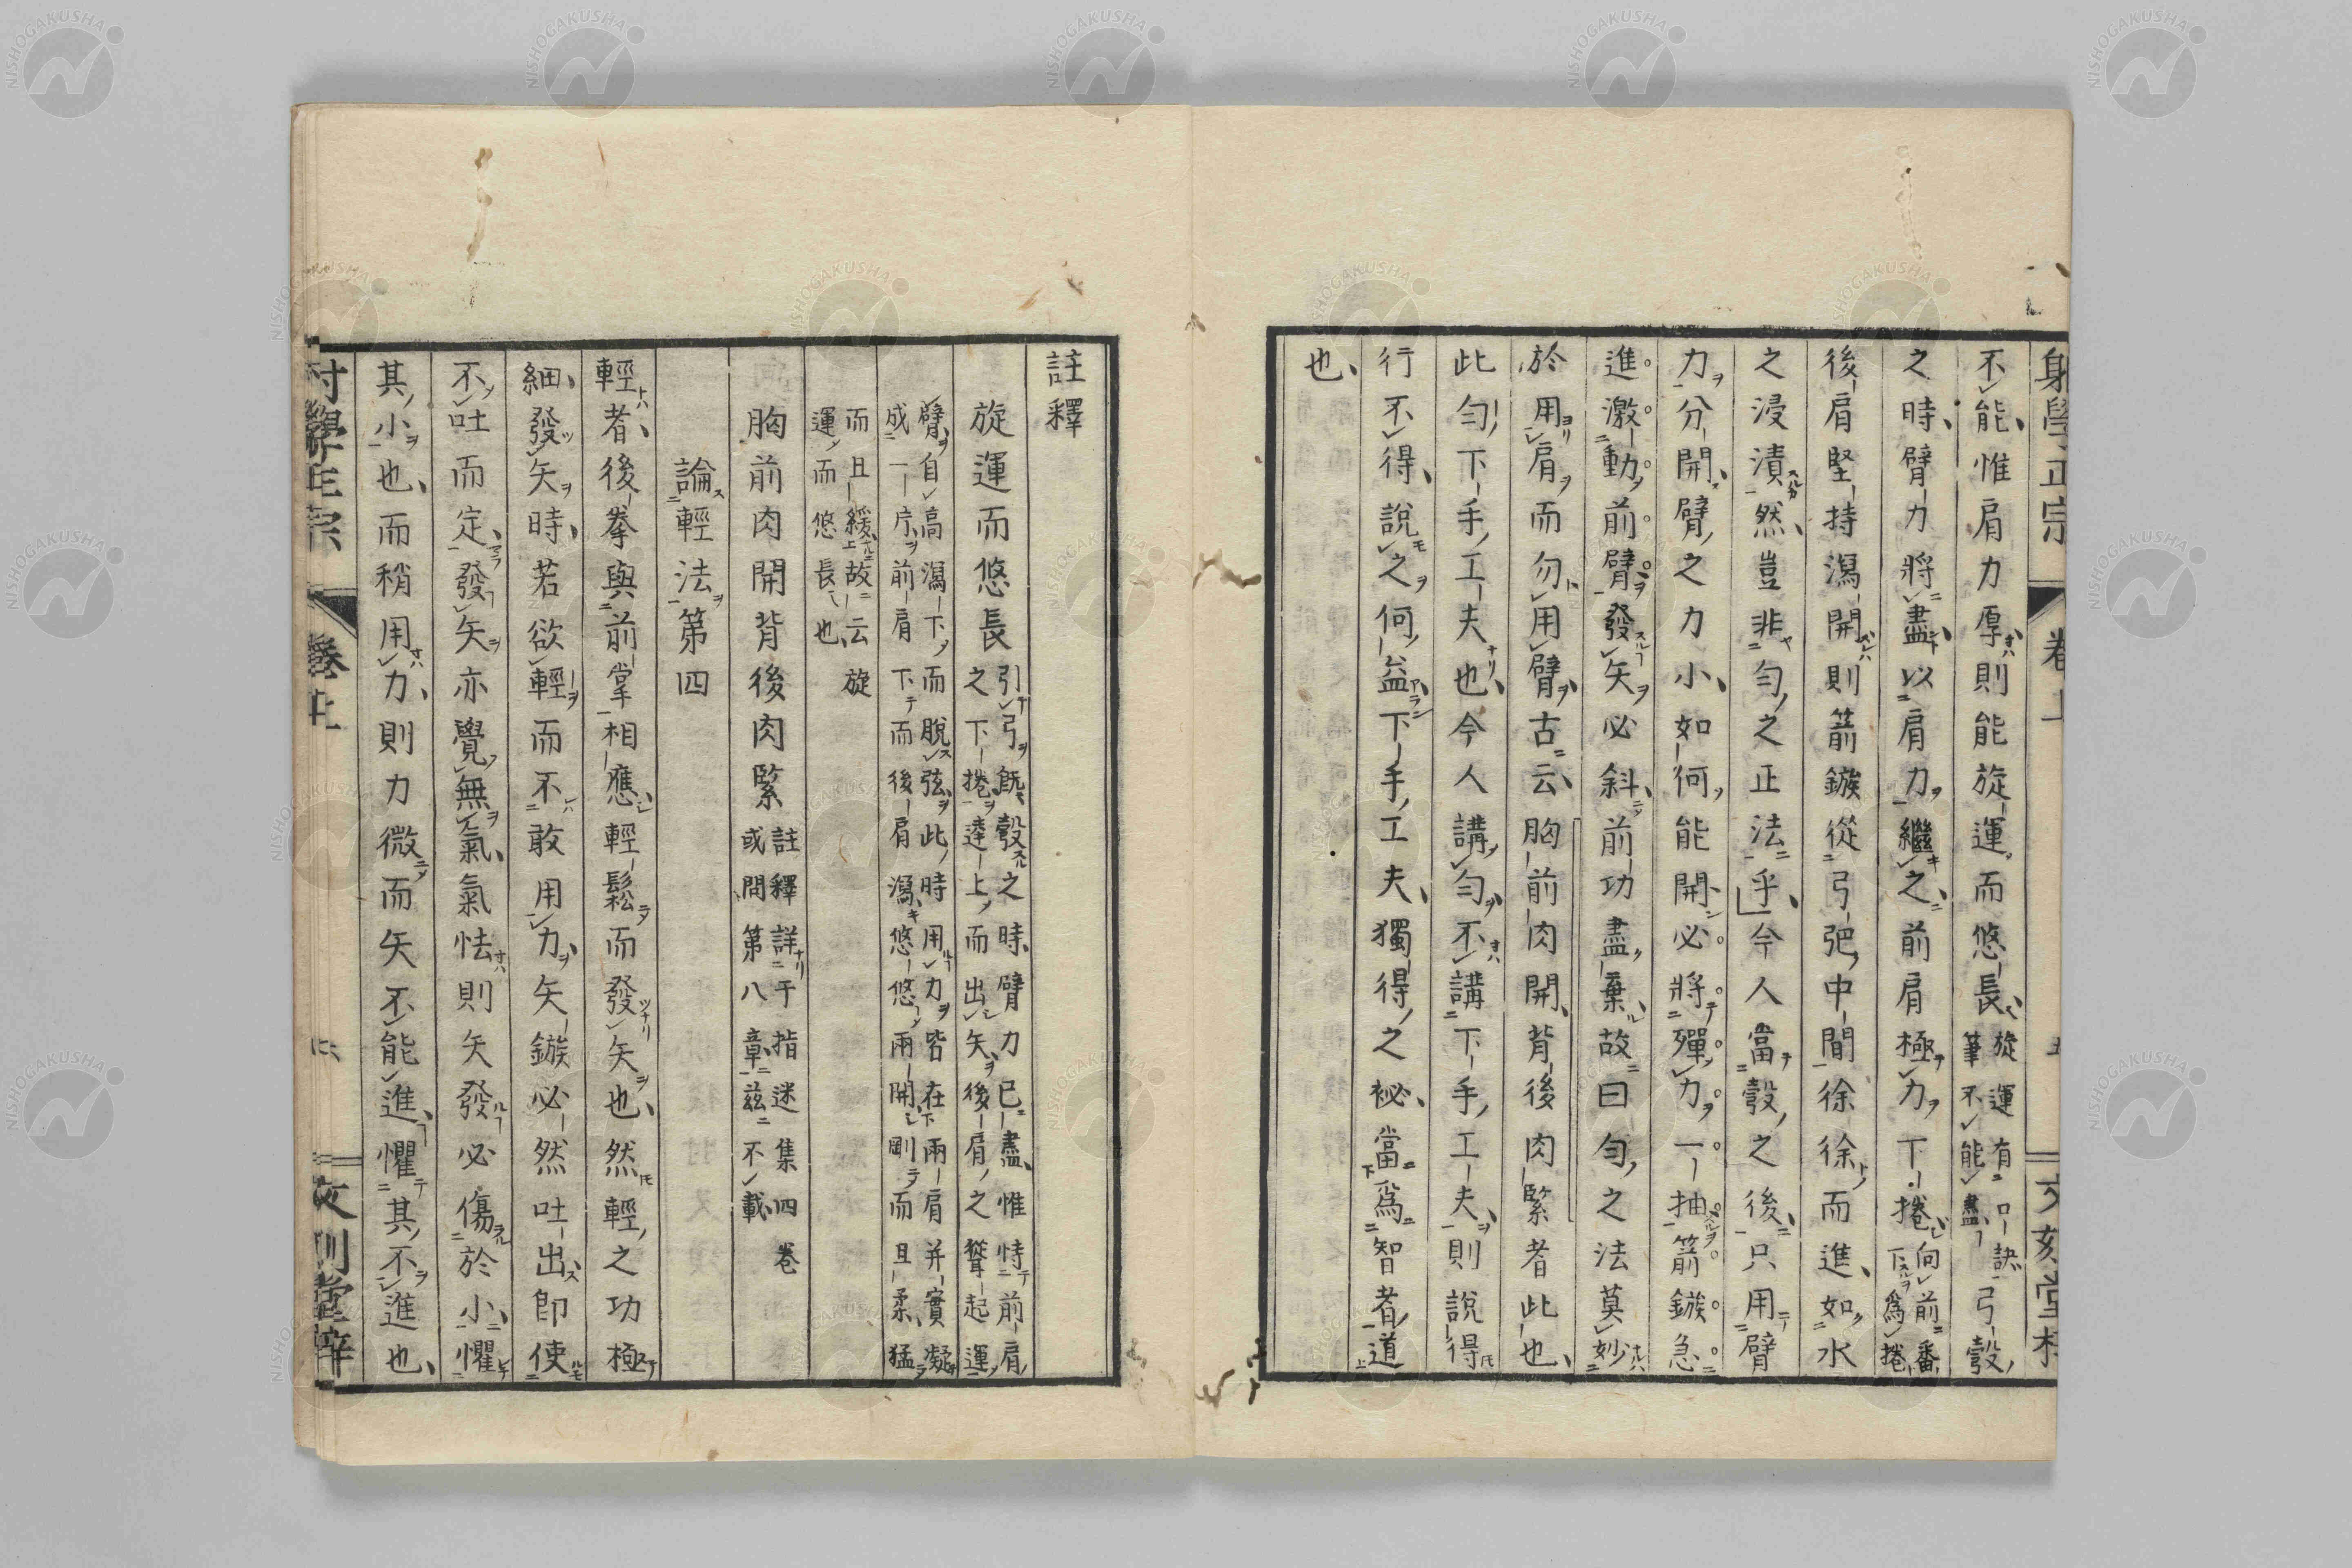 射學正宗 卷上 五 文刻堂梓
不能惟肩力厚則能旋運而悠長旋運有口訣弓彀筆不能盡
之時臂力將盡以肩力繼之前肩極力下捲向前番下爲捲
後肩堅持瀉開則箭鏃從弓弝中間徐徐而進如水
之浸漬然豈非勻之正法乎今人當彀之後只用臂
力分開臂之力小如何能開必將殫力一抽箭鏃急
進激動前臂發矢必斜前功盡棄故曰勻之法莫妙
於用肩而勿用臂古云胸前肉開背後肉緊者此也
此勻下手工夫也今人講勻不講下手工夫則說得
行不得說之何益下手工夫獨得之祕當爲智者道
也
註釋
旋運而悠長引弓旣彀之時臂力已盡惟恃前肩之下捲達上而出矢後肩之聳起運
臂自高瀉下而脫弦此時用力皆在兩肩并實凝成一片前肩下而後肩瀉悠悠兩開剛而且柔猛
而且緩故云旋運而悠長也
胸前肉開背後肉緊註釋詳于指迷集四卷或問第八章茲不載
論輕法第四
輕者後拳與前掌相應輕鬆而發矢也然輕之功極
細發矢時若欲輕而不敢用力矢鏃必然吐出卽使
不吐而定發矢亦覺無氣氣怯則矢發必傷於小懼
其小也而稍用力則力微而矢不能進懼其不進也
射學正宗 卷上 文刻堂梓